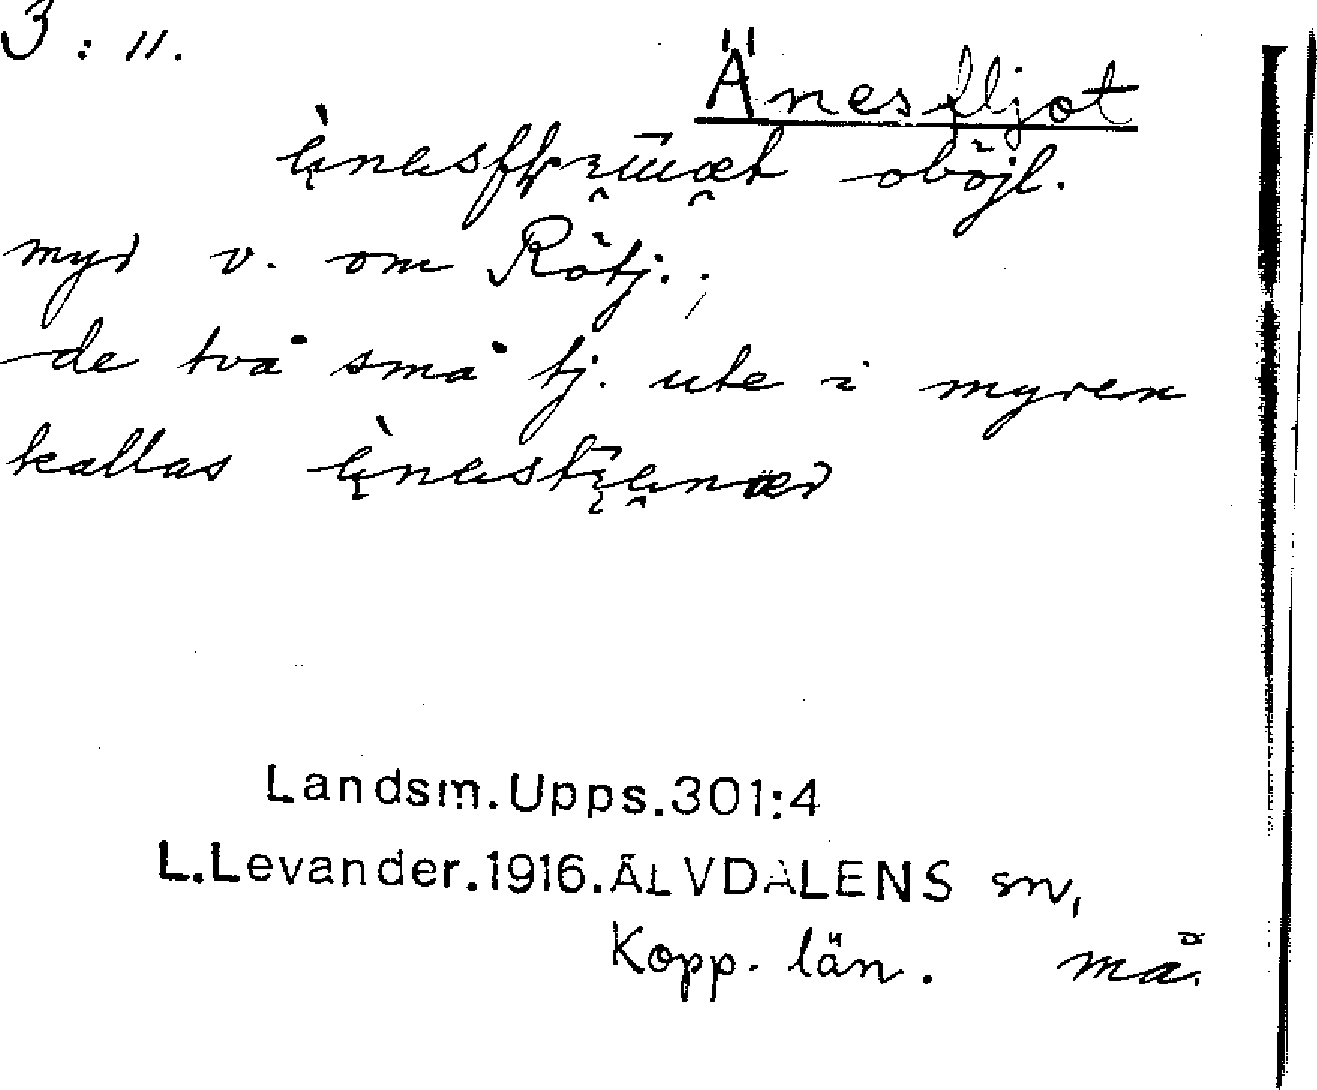 3 : 11.
Änesfljot
oböjl.
myr v. om Rötj.;
de två små tj. ute i myren
kallas
Landsm.Upps.301:4
L.Levander.1916.ÄLVDALENS sn,
Kopp. län.